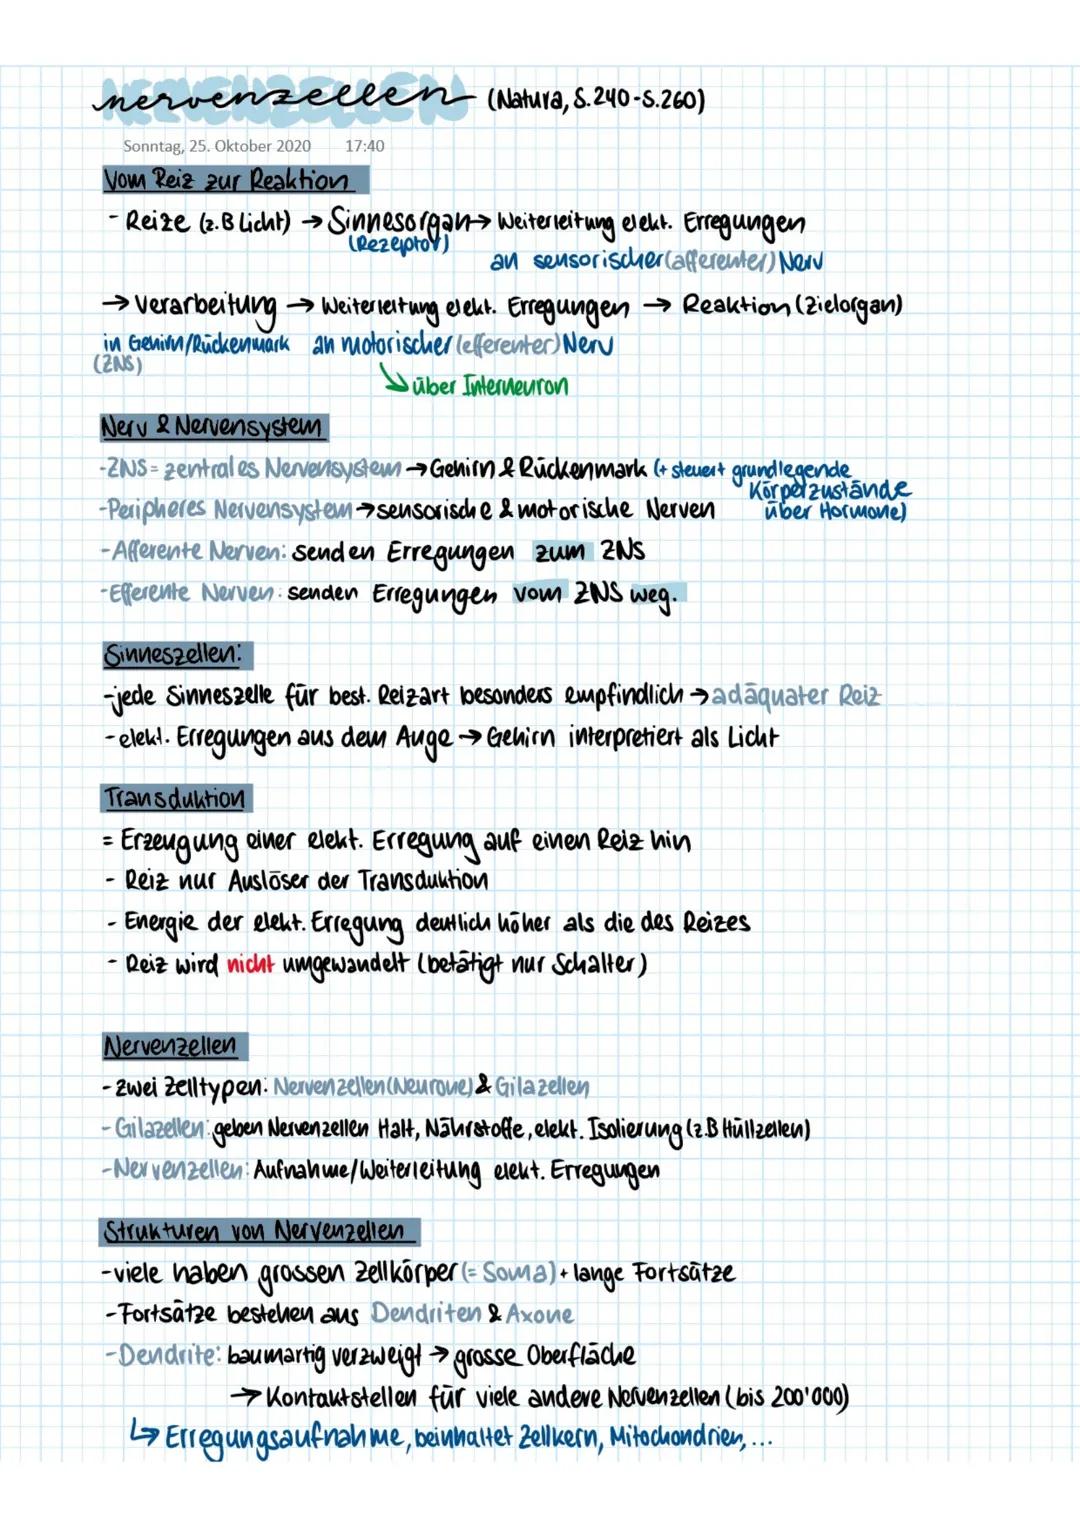 nervenzellen (Natura, S.240-S.260)
Sonntag, 25. Oktober 2020 17:40
Vom Reiz zur Reaktion
- Reize (z.B Licht) → Sinnesorgan → Weiterleitung elekt. Erregungen
(Rezeptor) an sensorischer (afferenter) Nerv
→ Verarbeitung → Weiterleitung elekt. Erregungen → Reaktion (Zielorgan)
in Gehirn/Rückenmark an motorischer (efferenter) Nerv
(ZNS)
↘ über Interneuron
Nerv & Nervensystem
-ZNS = zentrales Nervensystem → Gehirn & Rückenmark (+ steuert grundlegende
Körperzustände
-Peripheres Nervensystem → sensorische & motorische Nerven über Hormone)
-Afferente Nerven: senden Erregungen zum ZNS
-Efferente Nerven: senden Erregungen vom ZNS weg.
Sinneszellen:
-jede Sinneszelle für best. Reizart besonders empfindlich → adäquater Reiz
-elekt. Erregungen aus dem Auge → Gehirn interpretiert als Licht
Transduktion
= Erzeugung einer elekt. Erregung auf einen Reiz hin
- Reiz nur Auslöser der Transduktion
- Energie der elekt. Erregung deutlich höher als die des Reizes
- Reiz wird nicht umgewandelt (betätigt nur Schalter)
Nervenzellen
- zwei Zelltypen: Nervenzellen (Neurone) & Gilazellen
- Gilazellen: geben Nervenzellen Halt, Nährstoffe, elekt. Isolierung (z.B Hüllzellen)
-Nervenzellen: Aufnahme/Weiterleitung elekt. Erregungen
Strukturen von Nervenzellen
-viele haben grossen Zellkörper (= Soma) + lange Fortsätze
-Fortsätze bestehen aus Dendriten & Axone
-Dendrite: baumartig verzweigt → grosse Oberfläche
→ Kontaktstellen für viele andere Nervenzellen (bis 200'000)
↳ Erregungsaufnahme, beinhaltet Zellkern, Mitochondrien, ...